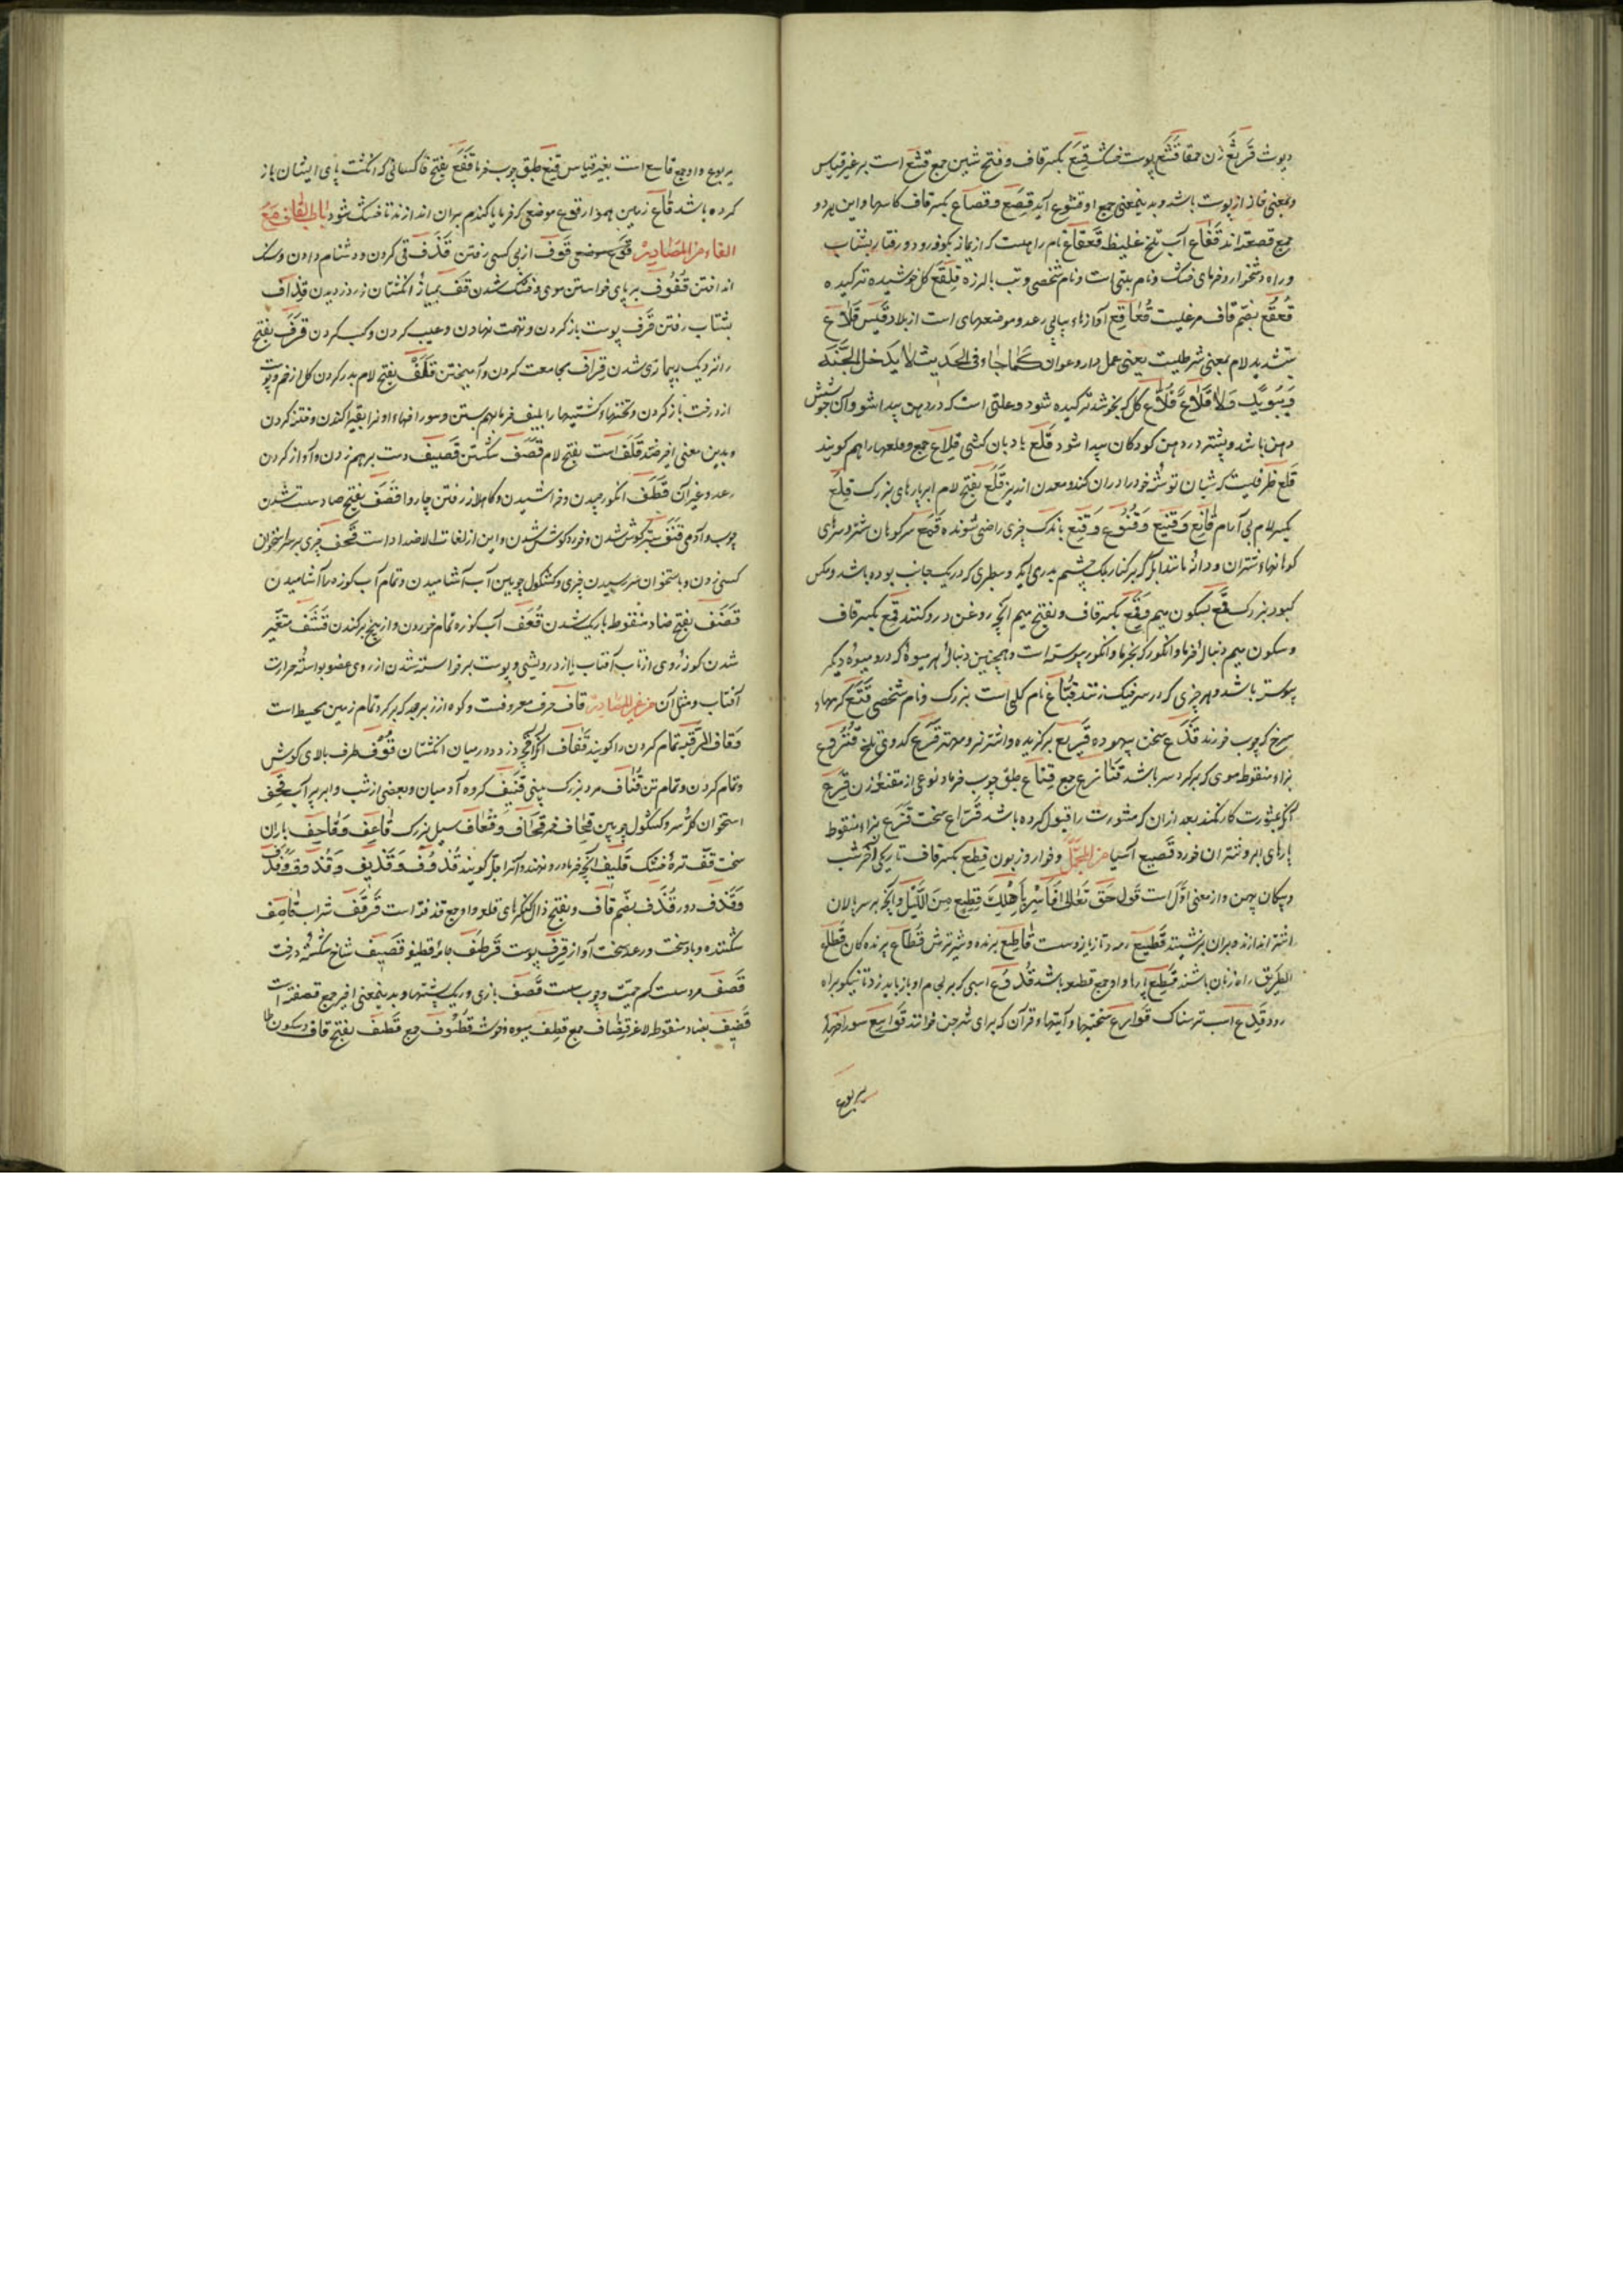 دیوث قَرثَع زن حمقا قَشع پوست خشک قِشَع بکسر قاف و فتح شین جمع قشع است بر غیر قیاس
و بمعنی خانه از پوست باشد و بدینمعنی جمع او قشوع آید قِصَع و قِصاع بکسر قاف کاسها و این هر دو
جمع قصعه‌اند قُعاع آب تلخ غلیظ قَعقاع نام راهیست که از یمامه بکوفه رود و رفتار بشتاب
و راه دشخوار و خرمای خشک و نام بتی است و نام شخصی و تب با لرزه قِلفَع گل خوشیده ترکیده
قُعقُع بضم قاف مرغیست قُعاقِع آوازهاء پیاپی رعد و موضعهای است از بلاد قیس قَلّاع
بتشدید لام بمعنی شرطیست یعنی عمل‌دار و عوان کَما جاء فی الحدیث لا یدخل الجنّة
دَیبوب وَلا قَلّاع قُلاع گل که بخوشد ترکیده شود و علتی است که در دهن پیدا شود و آن جوشش
دهن باشد و بیشتر در دهن کودکان پیدا شود قِلع بادبان کشتی قِلاع جمع و قلعها را هم گویند
قَلع ظرفیست که شبان توشه خود را در آن کند و معدن ارزیز قَلَع بفتح لام ابر پارهای بزرک قَلِع
بکسر لام بی آرام قانِع وَ قَنِیع وَ قَنُوع وَ قَنِع باندک چیزی راضی شونده قَمَع سر کوهان شتر و سرهای
کوهانهاء شتران و دانهٔ مانند آبله که بر کنار پلک چشم پدید آید و سطبری که در یک جانب بوده باشد و مکس
کبود بزرک قَمع بسکون میم وَ قِمَع بکسر قاف و بفتح میم آنچه روغن در او کنند قِمع بکسر قاف
و سکون میم دنبالهٔ خرما و انگور که بخرما و انگور پیوسته است و همچنین دنبالهٔ هر میوهٔ که در و میوهٔ دیگر
پیوسته باشد و هر چیزی که در سر خیک زنند قُباع نام کیلی است بزرک و نام شخصی قَتَع کرمهاء
سرخ که چوب خورند قَذَع سخن بیهوده قَرِیع برگزیده و اشتر نر و مهتر قَرع کدوی تلخ قُنزُع
بزاء منقوطه موی که بر گرد سر باشد قَنازِع جمع قِناع طبق چوب خرما و نوعی از مقنعهٔ زن قَرِع
آنکه بمشورت کار نکند بعد از آن که مشورت را قبول کرده باشد قَرّاع سخت قَزَع بزاء منقوطه
پارهای ابر و شتران خورد قَصِیع آسیا من المجمل و خوار و زبون قِطع بکسر قاف تاریکی آخر شب
و پیکان پهن و از معنی اوّل است قول حق تعالی فَاَسرِ بِاَهلِکَ بِقِطعٍ مِنَ اللَّیل و آنچه بر سر پالان
اشتر اندازند و بر آن نشینند قَطِیع رمه و تازیانه و دست قاطِع برنده و شیر ترش قُطّاع برنده کان قُطّاع
الطریق راه زنان باشند قِطَع پارها و او جمع قطعه باشد قَدُوع اسبی که برنجانم او باز باید زد تا نیکو براه
رود قَدِع اسب ترسناک قَوارع سختیها و آیتهاء قرآن که برای شر جن خوانند قَواصع سوراخهای
یربوع
یربوع و او جمع قاصع است بغیر قیاس قِنع طبق چوب خرما قَفَع بفتح فا کسانی که انگشت پای ایشان باز
کرده باشد قاع زمین هموار قوع موضعی که خرما یا کندم بر آن اندازند تا خشک شود باب القاف مع
الفاء من المصادر قوف از پی کسی رفتن قَذف قی کردن و دشنام دادن و سنک
انداختن قُفُوف بر پای خواستن موی و خشک شدن قَفّ میان انگشتان زر دزدیدن قِذاف
بشتاب رفتن قَرف پوست باز کردن و تهمت نهادن و عیب کردن و کسب کردن قَرَف بفتح
را نزدیک بیماری شدن قِراف مجامعت کردن و آمیختن قَلف بفتح لام بدر کردن گل از خم و پوست
از درخت باز کردن و تختهاء کشتیها را بلیف خرما بهم بستن و سوراخهاء او را بقیر آکندن و ختنه کردن
و بدین معنی اخیر ضد قَلَف است بفتح لام قَصف شکستن قَصِیف دست بر هم زدن و آواز کردن
رعد و غیر آن قَطف انکور چیدن و خراشیدن و کاهلانه رفتن چاروا قَصَف بفتح صاد سست شدن
چوب و آدمی قَنَف ستبر کوش شدن و خورد کوش شدن و این از لغات الاضداد است قَحف چیزی بر سر استخوان
کسی زدن و باستخوان سر رسیدن چیزی و کشکول چوبین آب آشامیدن و تمام آب کوزه را آشامیدن
قَضَف بفتح ضاد منقوطه باریک شدن قَعف آب کوزه تمام خوردن و از بیخ برکندن قَشَف متغیّر
شدن گونهٔ روی از تاب آفتاب یا از درویشی و پوست برخواسته شدن از روی عضو بواسطهٔ حرارت
آفتاب و مثل آن من غیر المصادر قاف حرف معروفست و کوه از زبرجد که بر گرد تمام زمین محیط است
و قاف الرّقبة تمام گردن را گویند قَفّاف آنکه در میان انگشتان قُوف طرف بالای کوش
و تمام گردن و تمام تن قُناف مرد بزرک بینی قَنِیف گروه آدمیان و بعضی از شب و ابر پر آب قِحف
استخوان کلهٔ سر و کشکول چوبین قِحاف خمر قُحاف وَ قُعاف سیل بزرک قاعِف وَ قاحِف باران
سخت قَفّ ترهٔ خشک قَلِیف آنچه خرما در او نهند و آنرا جلّه گویند قَذُوف وَ قَذِیف
وَ قَذَف دور قُذَف بضم قاف و بفتح ذال کنکرهای قلعه و او جمع قذفه است قَرقَف شراب قاصِف
شکننده و باد سخت و رعد سخت آواز قِرف پوست قَرطَف جامهٔ قطیفه قَصِیف شاخ شکستهٔ درخت
قَصِف مرد سست کم حمیّت و چوب سست قَصف بازی و ریک پشتها و بدینمعنی اخیر جمع قصفه است
قَضِیف بضاد منقوطه لاغر قِضاف جمع قِطف میوه و خوشه قُطُوف جمع قَطف بفتح قاف و سکون طا